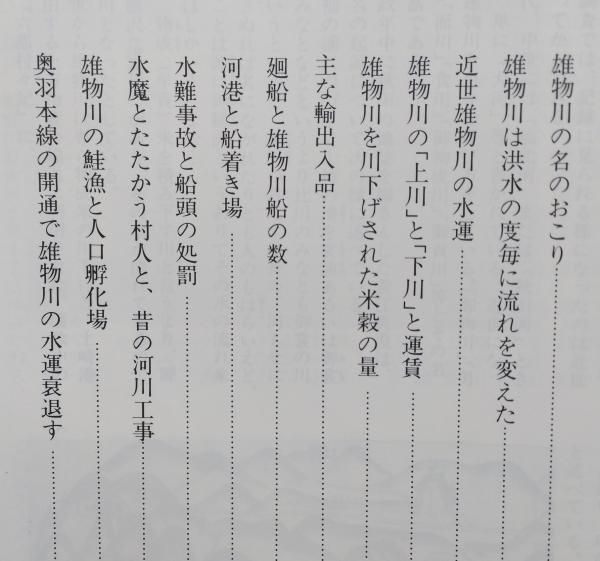 雄物川の名のおこり
雄物川は洪水の度毎に流れを変えた
近世雄物川の水運
雄物川の「上川」と「下川」と運賃
雄物川を川下げされた米穀の量
主な輸出入品
廻船と雄物川船の数
河港と船着き場
水難事故と船頭の処罰
水魔とたたかう村人と、昔の河川工事
雄物川の鮭漁と人口孵化場
奥羽本線の開通で雄物川の水運衰退す